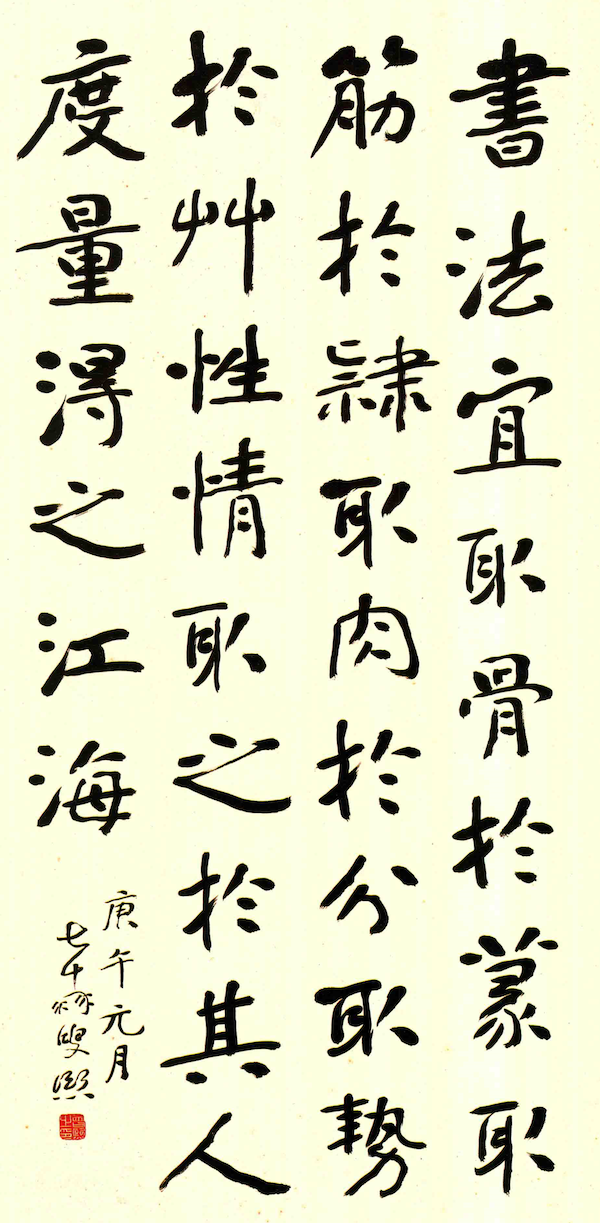 書法宜取骨於篆取
筋於隸取肉於分取勢
於艸性情取之於其人
度量得之江海
庚午元月
七十叟熙